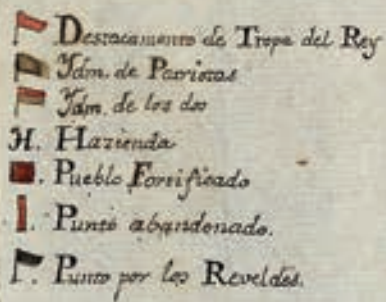 Destacamento de Tropa del Rey
Ydm. de Patriotas
Ydm. de los dos
H. Hazienda
Pueblo Fortificado
Punto abandonado.
Punto por los Reveldes.